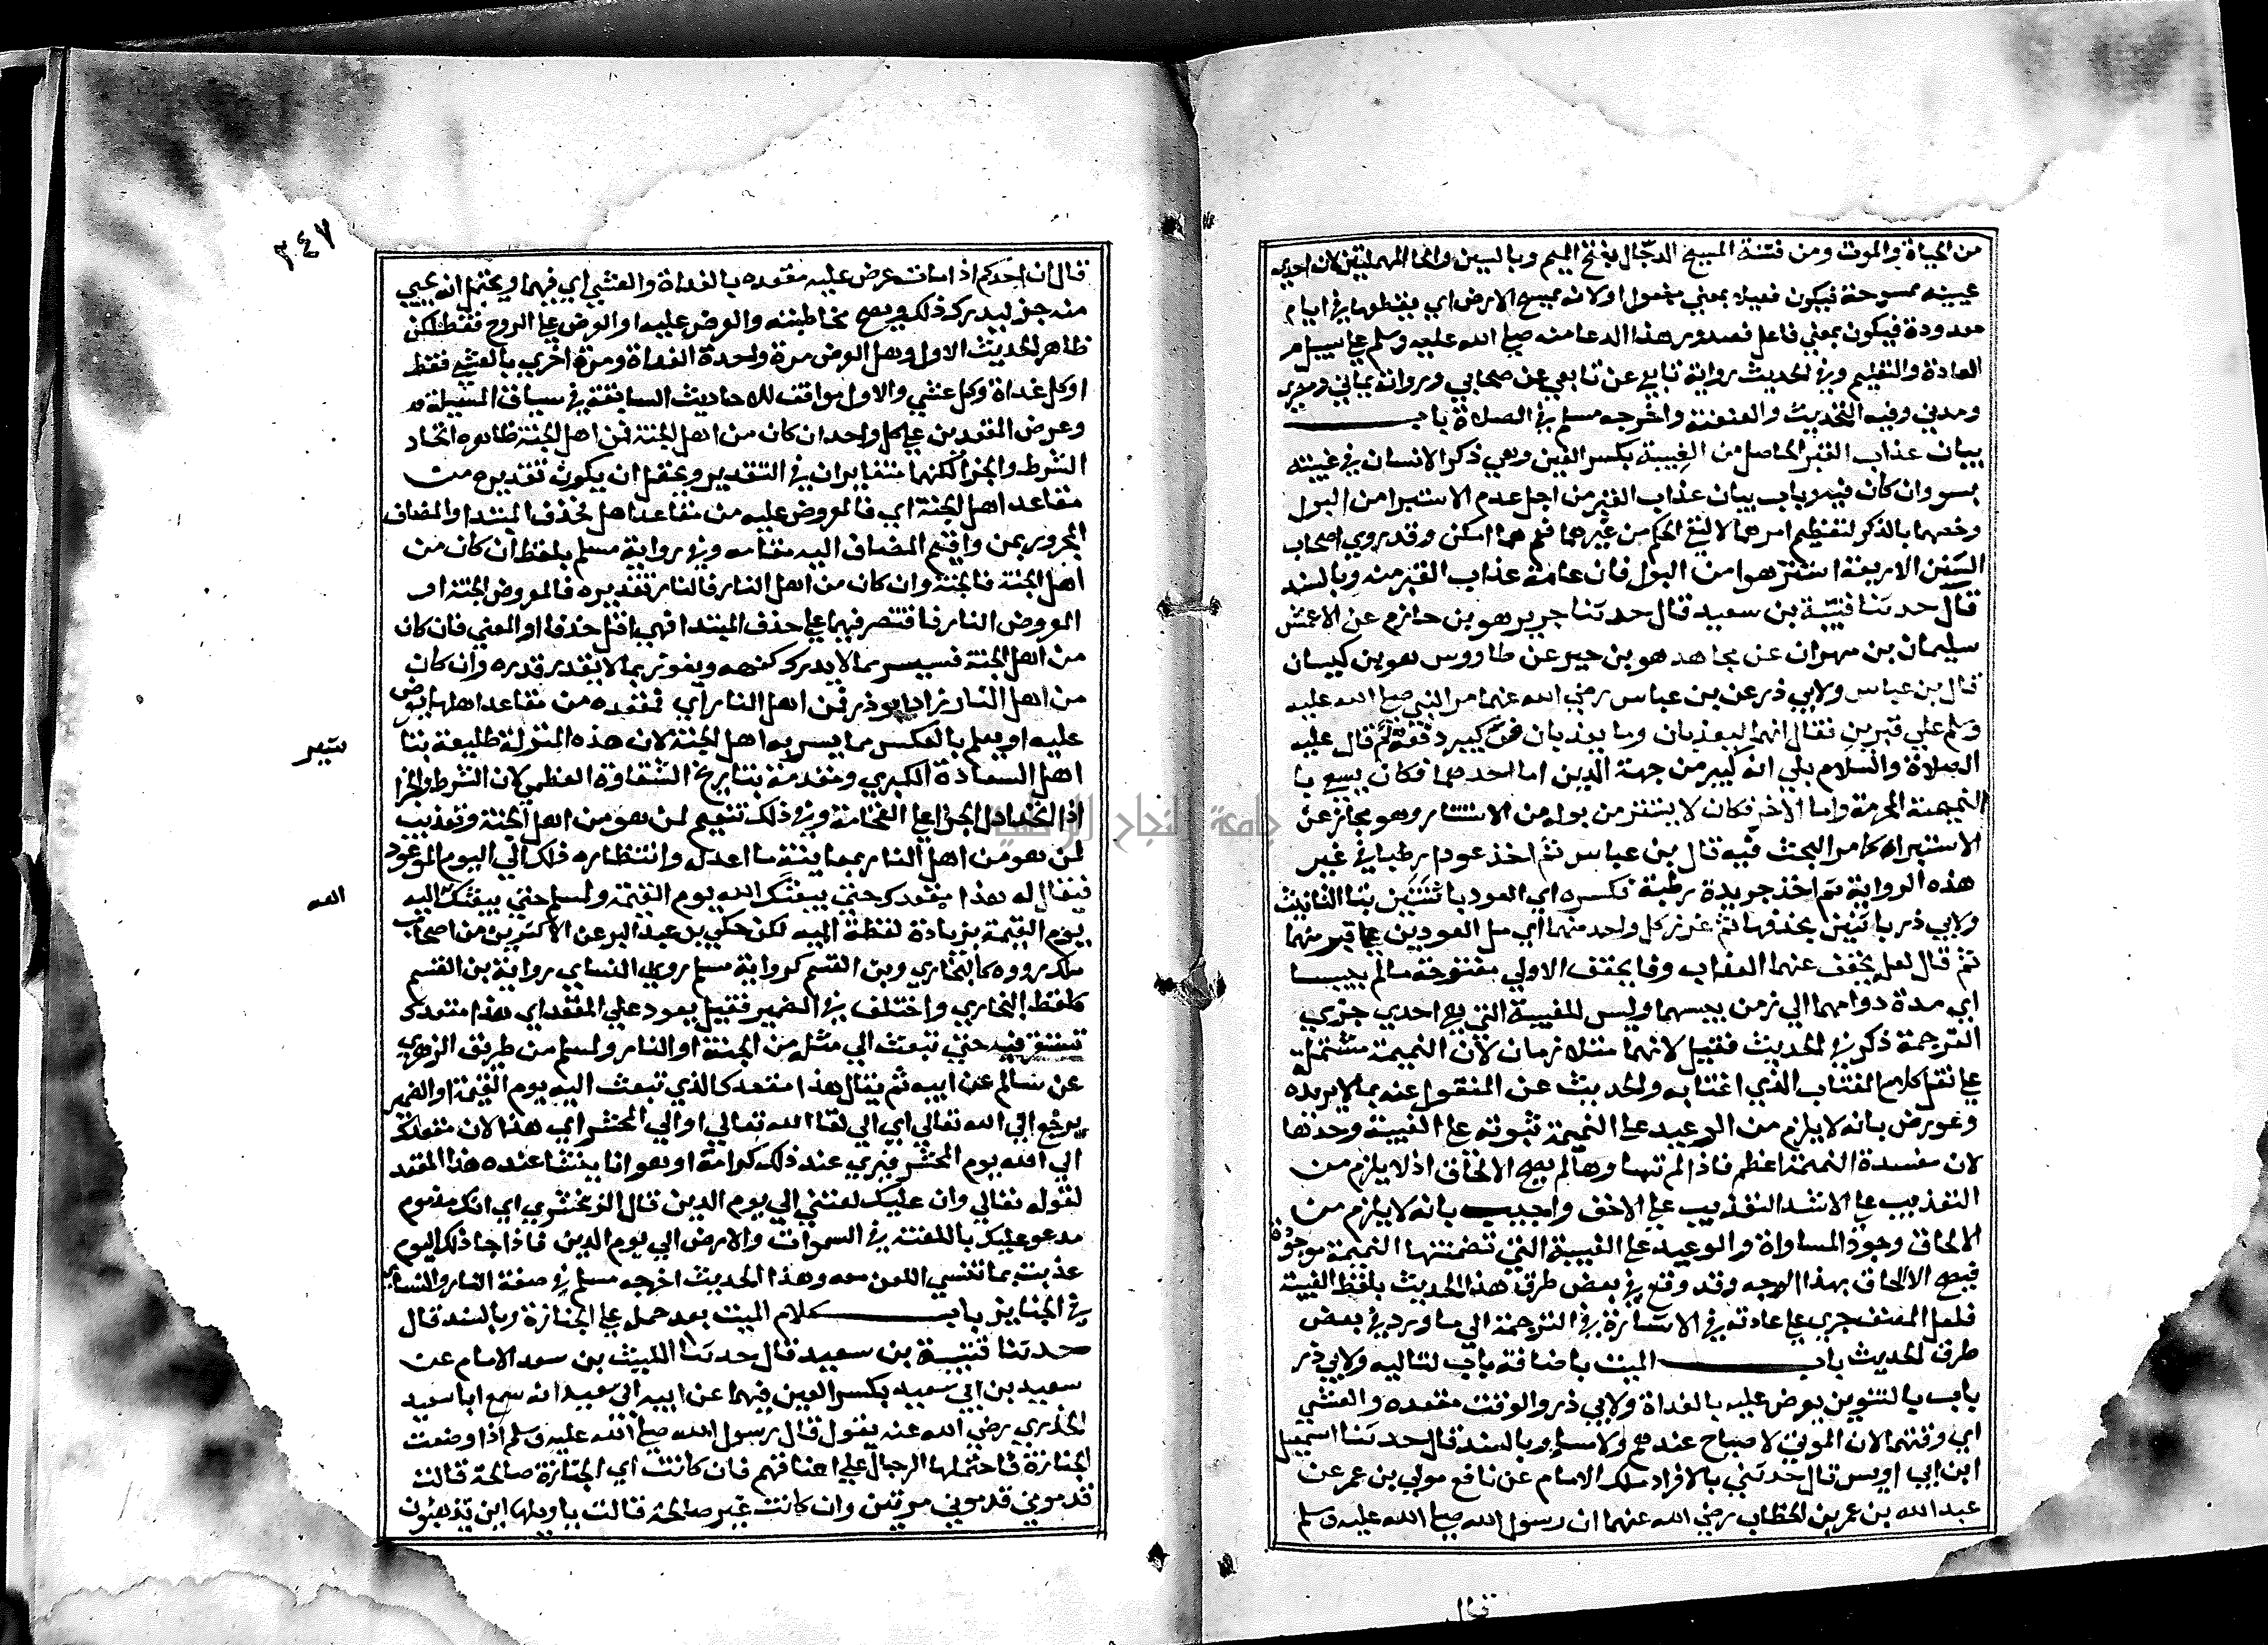 من الحياة والموت ومن فتنة المسيح الدجال بفتح الميم وبالسين والحا المهملتين لان احدي
عينيه ممسوحة فيكون فعيلا بمعني مفعول او لانه يمسح الارض اي يقطعها في ايام
معدودة فيكون بمعني فاعل فصدور هذا الدعا منه صلي الله عليه وسلم علي سبيل
العادة والتعليم وفي الحديث رواية تابعي عن تابعي عن صحابي ورواته يماني و
ومدني وفيه التحديث والعنعنة واخرجه مسلم في الصلاة باب
بيان عذاب القبر الحاصل من الغيبة بكسر الغين وهي ذكر الانسان في غيبته
بسو وان كان فيه وباب بيان عذاب القبر من اجل عدم الاستبرا من البول
وخصهما بالذكر لتعظيم امرهما لا لنفي الحكم من غيرهما فهما امكن وقد روي اصحاب
السنن الاربعة استنزهوا من البول فان عامة عذاب القبر منه وبالسند
قال حدثنا قتيبة بن سعيد قال حدثنا جرير هو بن حازم عن الاعمش
سليمان بن مهران عن مجاهد هو بن جبر عن طاووس هو بن كيسان
قال بن عباس ولابي ذر عن بن عباس رضي الله عنهما مر النبي صلي الله عليه
وسلم علي قبرين فقال انهما ليعذبان وما يعذبان من كبير دفعه ثم قال عليه
الصلاة والسلام بلي انه كبير من جهة الدين اما احدهما فكان يسعي با
النميمة المحرمة واما الاخر فكان لا يستتر من بوله من الاستتار وهو مجاز عن
الاستبرا كما مر البحث فيه قال بن عباس ثم اخذ عودا رطبا في غير
هذه الرواية ثم اخذ جريدة رطبة فكسره اي العود باثنتين بتا التانيث
ولابي ذر باثنين بحذفها ثم غرز كل واحد منهما اي من العودين علي قبر منهما
ثم قال لعله يخفف عنهما العذاب وفا يخفف الاولي مفتوحة ما لم ييبسا
اي مدة دوامهما الي زمن يبسهما وليس للغيبة التي هي احدي جزي
الترجمة ذكر في الحديث فقيل لانهما متلازمان لان النميمة مشتملة
علي نقل كلام المغتاب الذي اغتابه والحديث عن المنقول عنه بما لا يريده
وعورض بانه لا يلزم من الوعيد علي النميمة ثبوته علي الغيبة وحدها
لان مفسدة النميمة اعظم فاذا لم تساوها لم يصح الالحاق اذ لا يلزم من
التعذيب علي الاشد التعذيب علي الاخف واجيب بانه لا يلزم من
الالحاق وجود المساواة والوعيد علي الغيبة التي تضمنتها النميمة موجودة
فيصح الالحاق بهذا الوجه وقد وقع في بعض طرق هذا الحديث بلفظ الغيبة
فلعل المصنف جري علي عادته في الاشارة في الترجمة الي ما ورد في بعض
طرق الحديث باب الميت باضافة باب لتاليه ولابي ذر
باب بالتنوين يعرض عليه بالغداة ولابي ذر والوقت مقعده والعشي
اي وقتهما لان الموتي لا صباح عندهم ولا مسا وبالسند قال حدثنا اسمعيل
ابن ابي اويس قال حدثني بالافراد ملك الامام عن نافع مولي بن عمر عن
عبد الله بن عمر بن الخطاب رضي الله عنهما ان رسول الله صلي الله عليه وسلم
قال
٣٤٧
قال ان احدكم اذا مات عرض عليه مقعده بالغداة والعشي اي فيهما ويحتمل ان يحيي
منه جز ليدرك ذلك ويصح مخاطبته والعرض عليه او العرض علي الروح فقط لكن
ظاهر الحديث الاول وهل العرض مرة واحدة الغداة ومرة اخري بالعشي فقط
او كل غداة وكل عشي والاول موافق للاحاديث السابقة في سياق المسيلة
وعرض المقعدين علي كل واحد ان كان من اهل الجنة فمن اهل الجنة ظاهره اتحاد
الشرط والجزا لكنهما متغايران في التقدير ويحتمل ان يكون تقديره من
مقاعد اهل الجنة اي فالمعروض عليه من مقاعد اهل فحذف المبتدا والمضاف
المجرور بمن واقيم المضاف اليه مقامه وفي رواية مسلم بلفظ ان كان من
اهل الجنة فالجنة وان كان من اهل النار فالنار تقديره فالمعروض الجنة او
المعروض النار فاقتصر فيهما علي حذف المبتدا فهي اقل حذفا او المعني فان كان
من اهل الجنة فسيبسر بما لا يدرك كنهه ويفوز بما لا يقدر قدره وان كان
من اهل النار زاد ابو ذر فمن اهل النار اي فمقعده من مقاعد اهلها يعرض
عليه او يعلم بالعكس مما يسر به اهل الجنة لان هذه المنزلة طليعة بتا
شير
اهل السعادة الكبري ومقدمة بتاريخ الشقاوة العظمي لان الشرط والجزا
اذا اتحدا دل الجزا علي الفخامة وفي ذلك تنعيم لمن هو من اهل الجنة وتعذيب
لمن هو من اهل النار بمعاينة ما اعد له وانتظاره ذلك الي اليوم الموعود
فيقال له هذا مقعدك حتي يبعثك الله يوم القيمة ولمسلم حتي يبعثك اليه
الله
يوم القيمة بزيادة لفظة اليه لكن حكي بن عبد البر عن الاكثرين من اصحاب
ملك رووه كالبخاري وبن القسم كرواية مسلم روي النساي رواية بن القسم
كلفظ البخاري واختلف في الضمير فقيل يعود علي المقعد اي هذا مقعدك
تستقر فيه حتي تبعث الي مثله من الجنة او النار ولمسلم من طريق الزهري
عن سالم عن ابيه ثم يقال هذا مقعدك الذي تبعث اليه يوم القيمة او الضمير
يرجع الي الله تعالي اي الي لقا الله تعالي او الي المحشر اي هذا الان مقعدك
الي الله يوم المحشر فيري عند ذلك كرامة او هوانا ينسا عنده هذا المقعد
لقوله تعالي وان عليك لعنتي الي يوم الدين قال الزمخشري اي انك مذموم
مدعو عليك باللعنة في السموات والارض الي يوم الدين فاذا جا ذلك اليوم
عذبت بما تنسي اللعن معه وهذا الحديث اخرجه مسلم في صفة النار والنساي
في الجنايز باب كلام الميت بعد حمله علي الجنازة وبالسند قال
حدثنا قتيبة بن سعيد قال حدثنا الليث بن سعد الامام عن
سعيد بن ابي سعيد بكسر العين فيهما عن ابيه ابي سعيد انه سمع ابا سعيد
الخدري رضي الله عنه يقول قال رسول الله صلي الله عليه وسلم اذا وضعت
الجنازة فاحتملها الرجال علي اعناقهم فان كانت اي الجنازة صالحة قالت
قدموني قدموني مرتين وان كانت غير صالحة قالت ياويلها اين تذهبون
جامعة النجاح الوطنية